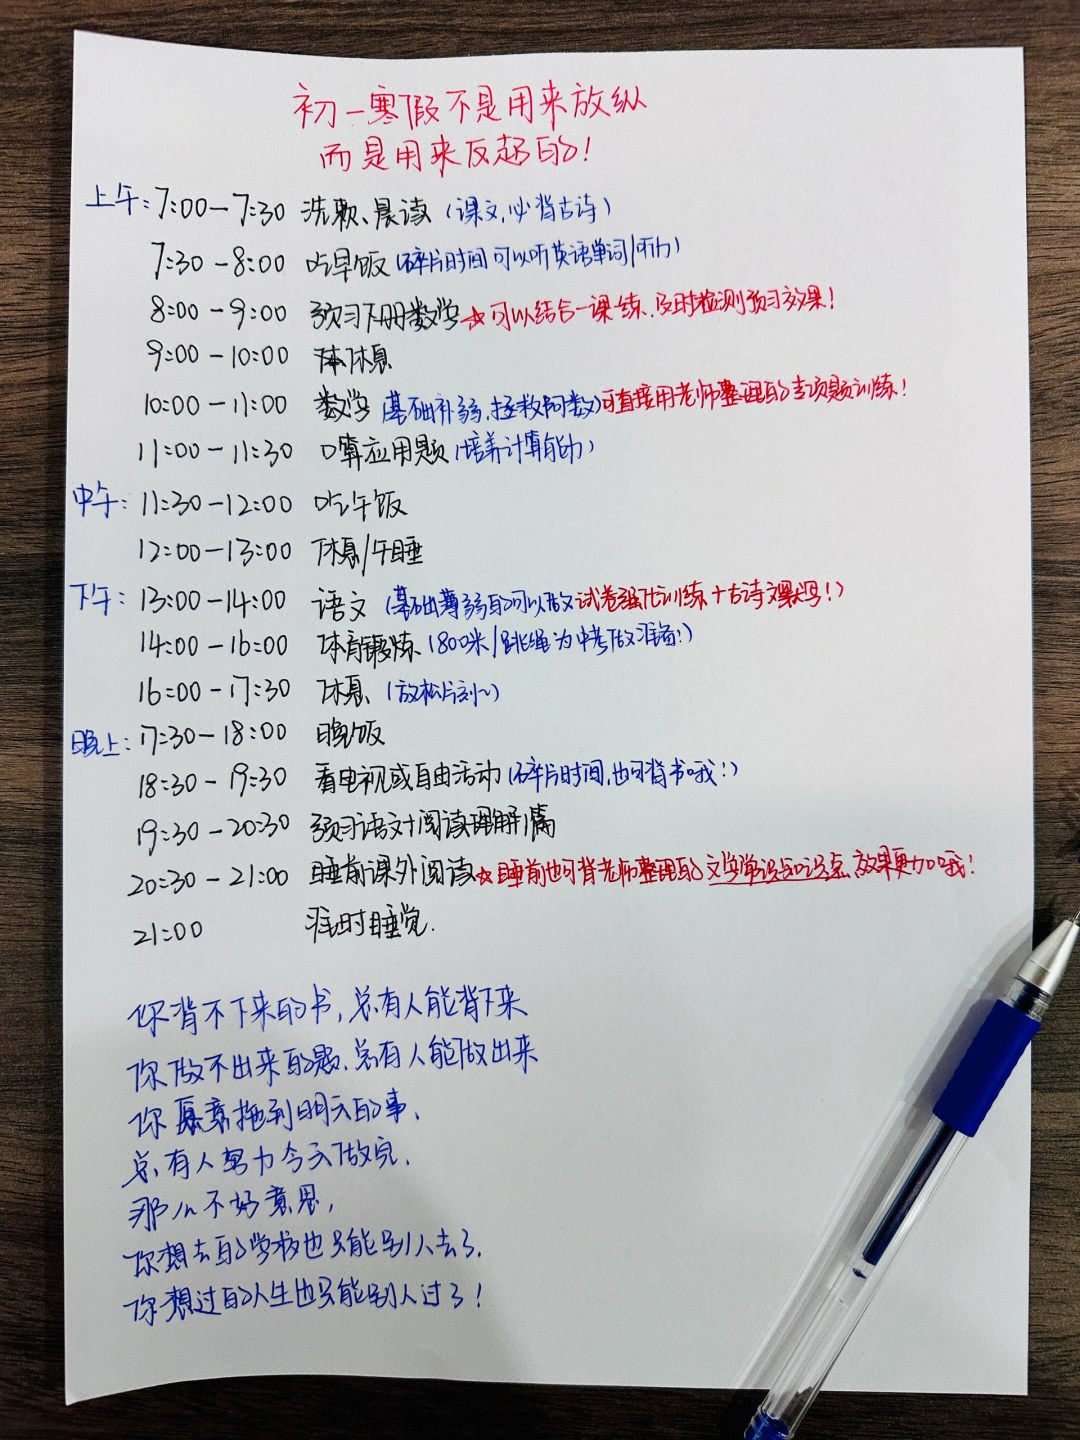 初一寒假不是用来放纵
而是用来反超的!
上午: 7:00-7:30 洗漱、晨读 (课文,必背古诗)
7:30-8:00 吃早饭 (碎片时间可以听英语单词/听力)
8:00-9:00 预习下册数学☆可以结合一课一练,及时检测预习效果!
9:00-10:00 休息
10:00-11:00 数学 (基础补弱,拯救函数)可直接用老师整理的专项题训练!
11:00-11:30 口算应用题 (培养计算能力)
中午: 11:30-12:00 吃午饭
12:00-13:00 休息/午睡
下午: 13:00-14:00 语文 (基础薄弱的可以做试卷强化训练+古诗文默写!)
14:00-16:00 体育锻炼 (800米/跳绳为中考做准备!)
16:00-17:30 休息 (放松片刻~)
晚上: 17:30-18:00 晚饭
18:30-19:30 看电视或自由活动 (碎片时间,也可背书哦!)
19:30-20:30 预习语文+阅读理解1篇
20:30-21:00 睡前课外阅读☆睡前也可背老师整理的文学常识知识点,效果更加哦!
21:00 准时睡觉.
你背不下来的书,总有人能背下来
你做不出来的题,总有人能做出来
你愿意拖到明天的事,
总有人努力今天做完.
那么不好意思,
你想去的学校也只能别人去了.
你想过的人生也只能别人过了!